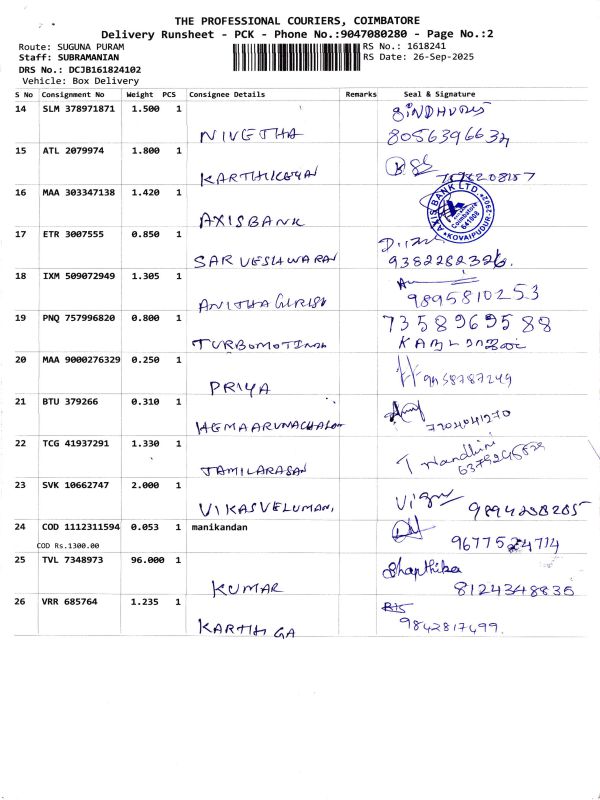 THE PROFESSIONAL COURIERS, COIMBATORE
Delivery Runsheet - PCK - Phone No.:9047080280 - Page No.:2
Route: SUGUNA PURAM RS No.: 1618241
Staff: SUBRAMANIAN RS Date: 26-Sep-2025
DRS No.: DCJB161824102
Vehicle: Box Delivery
S No Consignment No Weight PCS Consignee Details Remarks Seal & Signature
14 SLM 378971871 1.500 1
NIVETHA 8056396634
15 ATL 2079974 1.800 1
KARTHIKEYAN
16 MAA 303347138 1.420 1
AXIS BANK LTD.
Coimbatore
641008
KOVAIPUDUR
AXISBANK
17 ETR 3007555 0.850 1
SARVESHWARAN 9382282326.
18 IXM 509072949 1.305 1
ANITHA GIRISH 9895810253
19 PNQ 757996820 0.800 1 7358969588
20 MAA 9000276329 0.250 1
PRIYA 9958787249
21 BTU 379266 0.310 1
HEMAARUNACHALAM 7204041270
22 TCG 41937291 1.330 1
T Nandhini
TAMILARASAN
23 SVK 10662747 2.000 1
VIKASVELUMANI 9894238285
24 COD 1112311594 0.053 1 manikandan
COD Rs.1300.00 9677524714
25 TVL 7348973 96.000 1
KUMAR 8124348836
26 VRR 685764 1.235 1
KARTHIGA 9842817499.